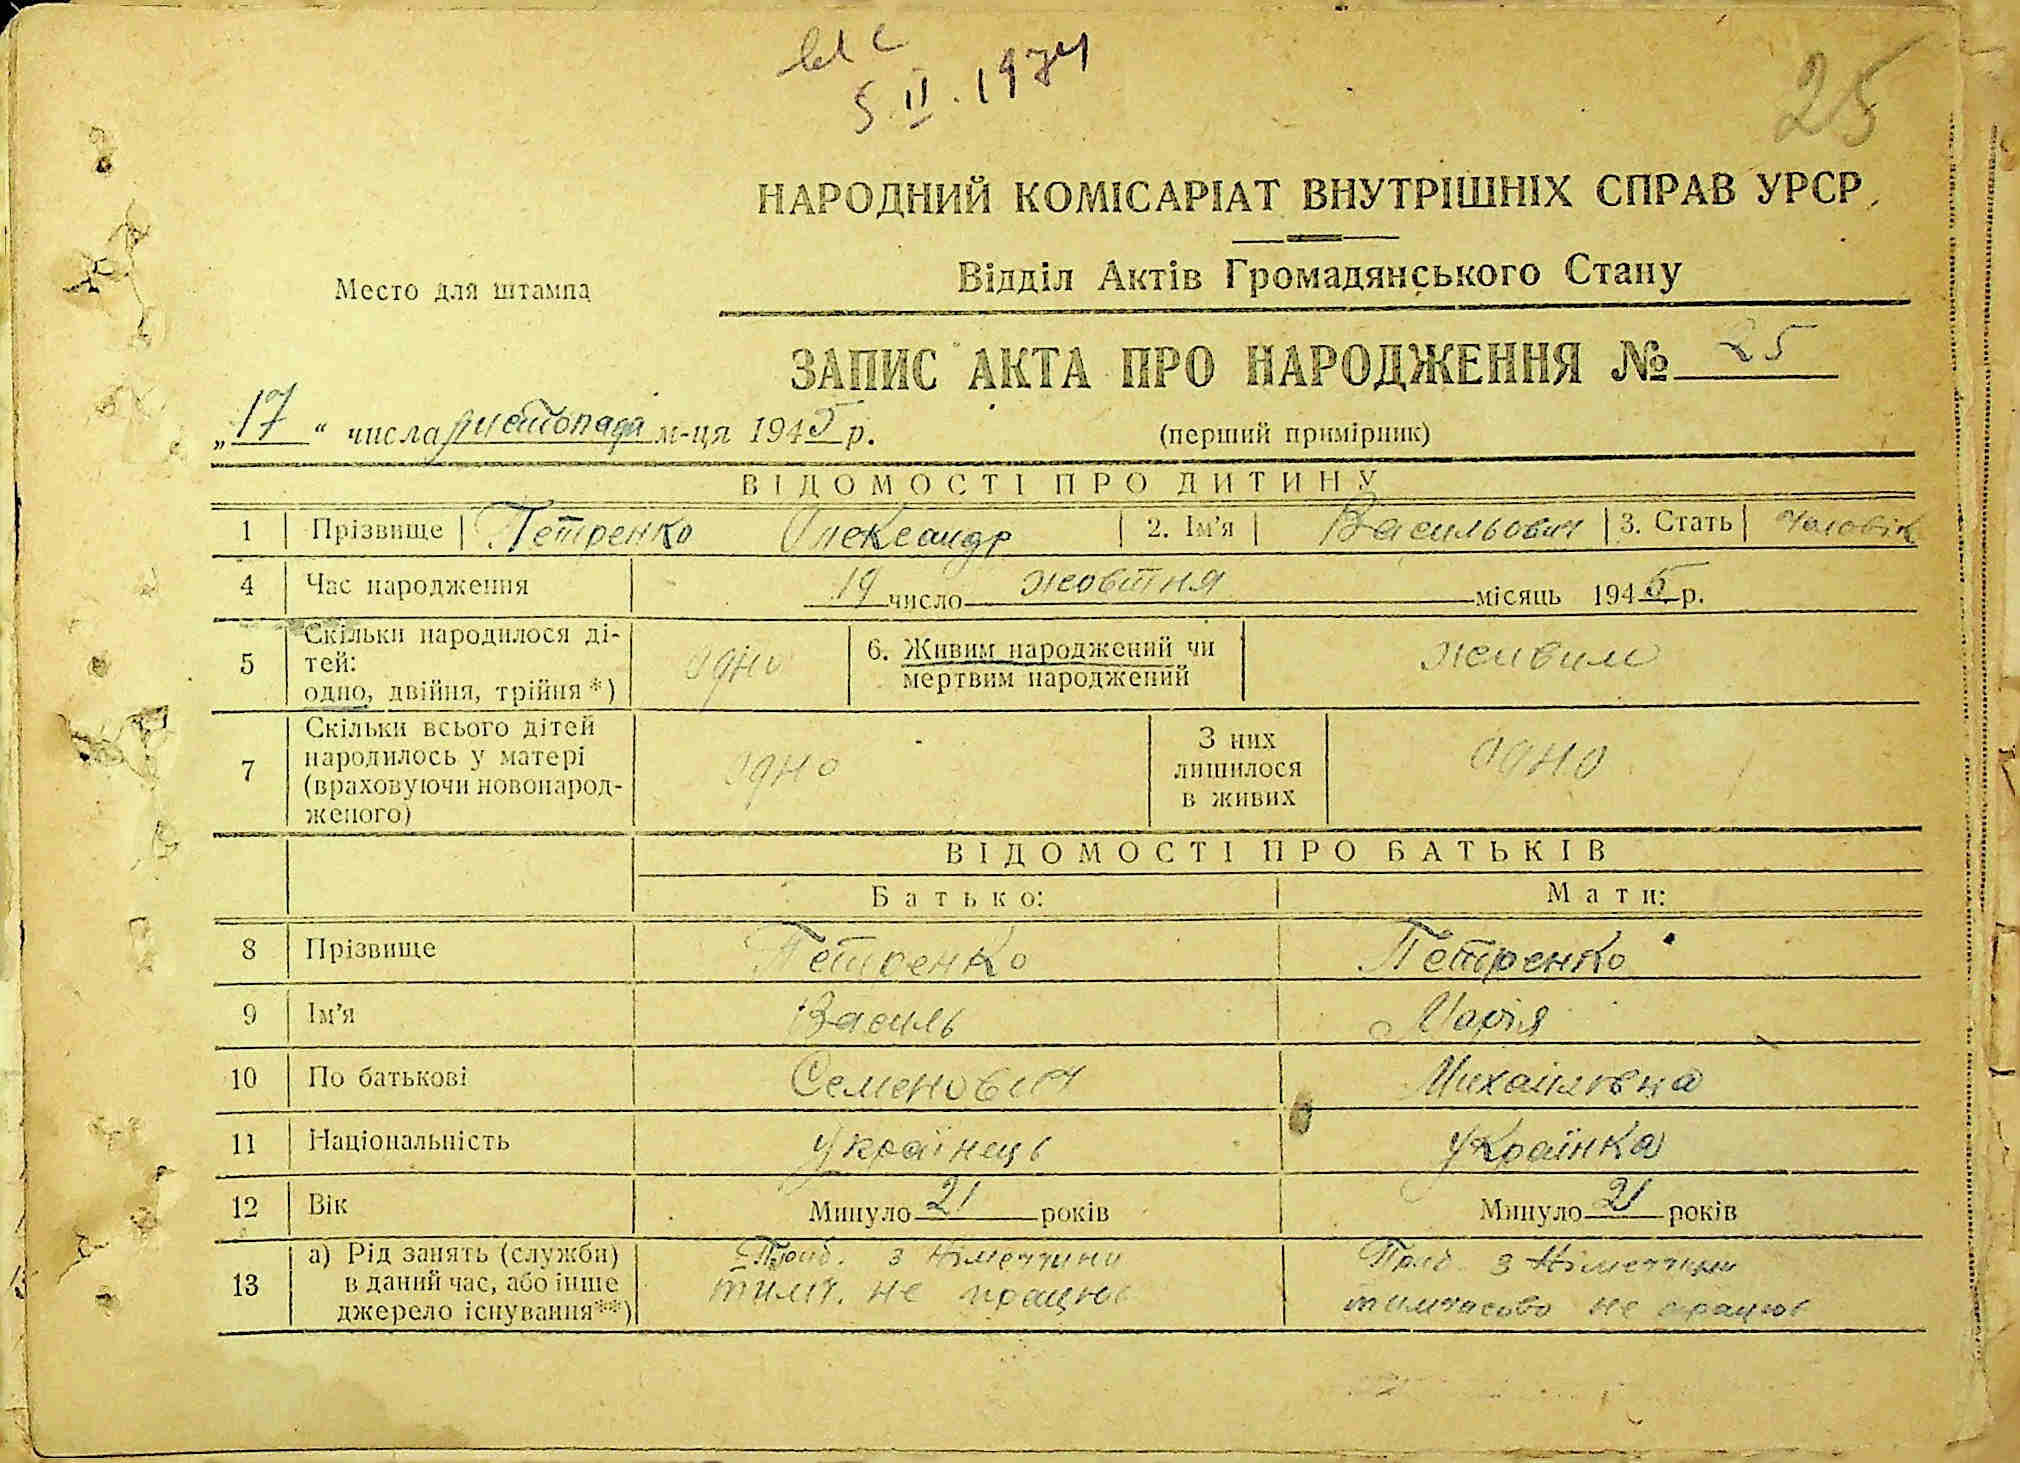 5.II.1974
25
НАРОДНИЙ КОМІСАРІАТ ВНУТРІШНІХ СПРАВ УРСР
Відділ Актів Громадянського Стану
Место для штампа
ЗАПИС АКТА ПРО НАРОДЖЕННЯ № 25
„17“ числа листопада м-ця 1945 р. (перший примірник)
ВІДОМОСТІ ПРО ДИТИНУ
1 Прізвище Петренко Олександр 2. Ім'я Васильович 3. Стать Чоловік
4 Час народження 19 число жовтня місяць 1945 р.
5 Скільки народилося ді-
тей:
одно, двійня, трійня*) одно 6. Живим народжений чи
мертвим народжений живим
7 Скільки всього дітей
народилось у матері
(враховуючи новонарод-
женого) одно З них
лишилося
в живих одно
ВІДОМОСТІ ПРО БАТЬКІВ
Батько: Мати:
8 Прізвище Петренко Петренко
9 Ім'я Василь Марія
10 По батькові Семенович Михайлівна
11 Національність Українець Українка
12 Вік Минуло 21 років Минуло 21 років
13 а) Рід занять (служби)
в даний час, або інше
джерело існування**) Приб. з Німеччини
тимч. не працює Приб. з Німеччини
тимчасово не працює